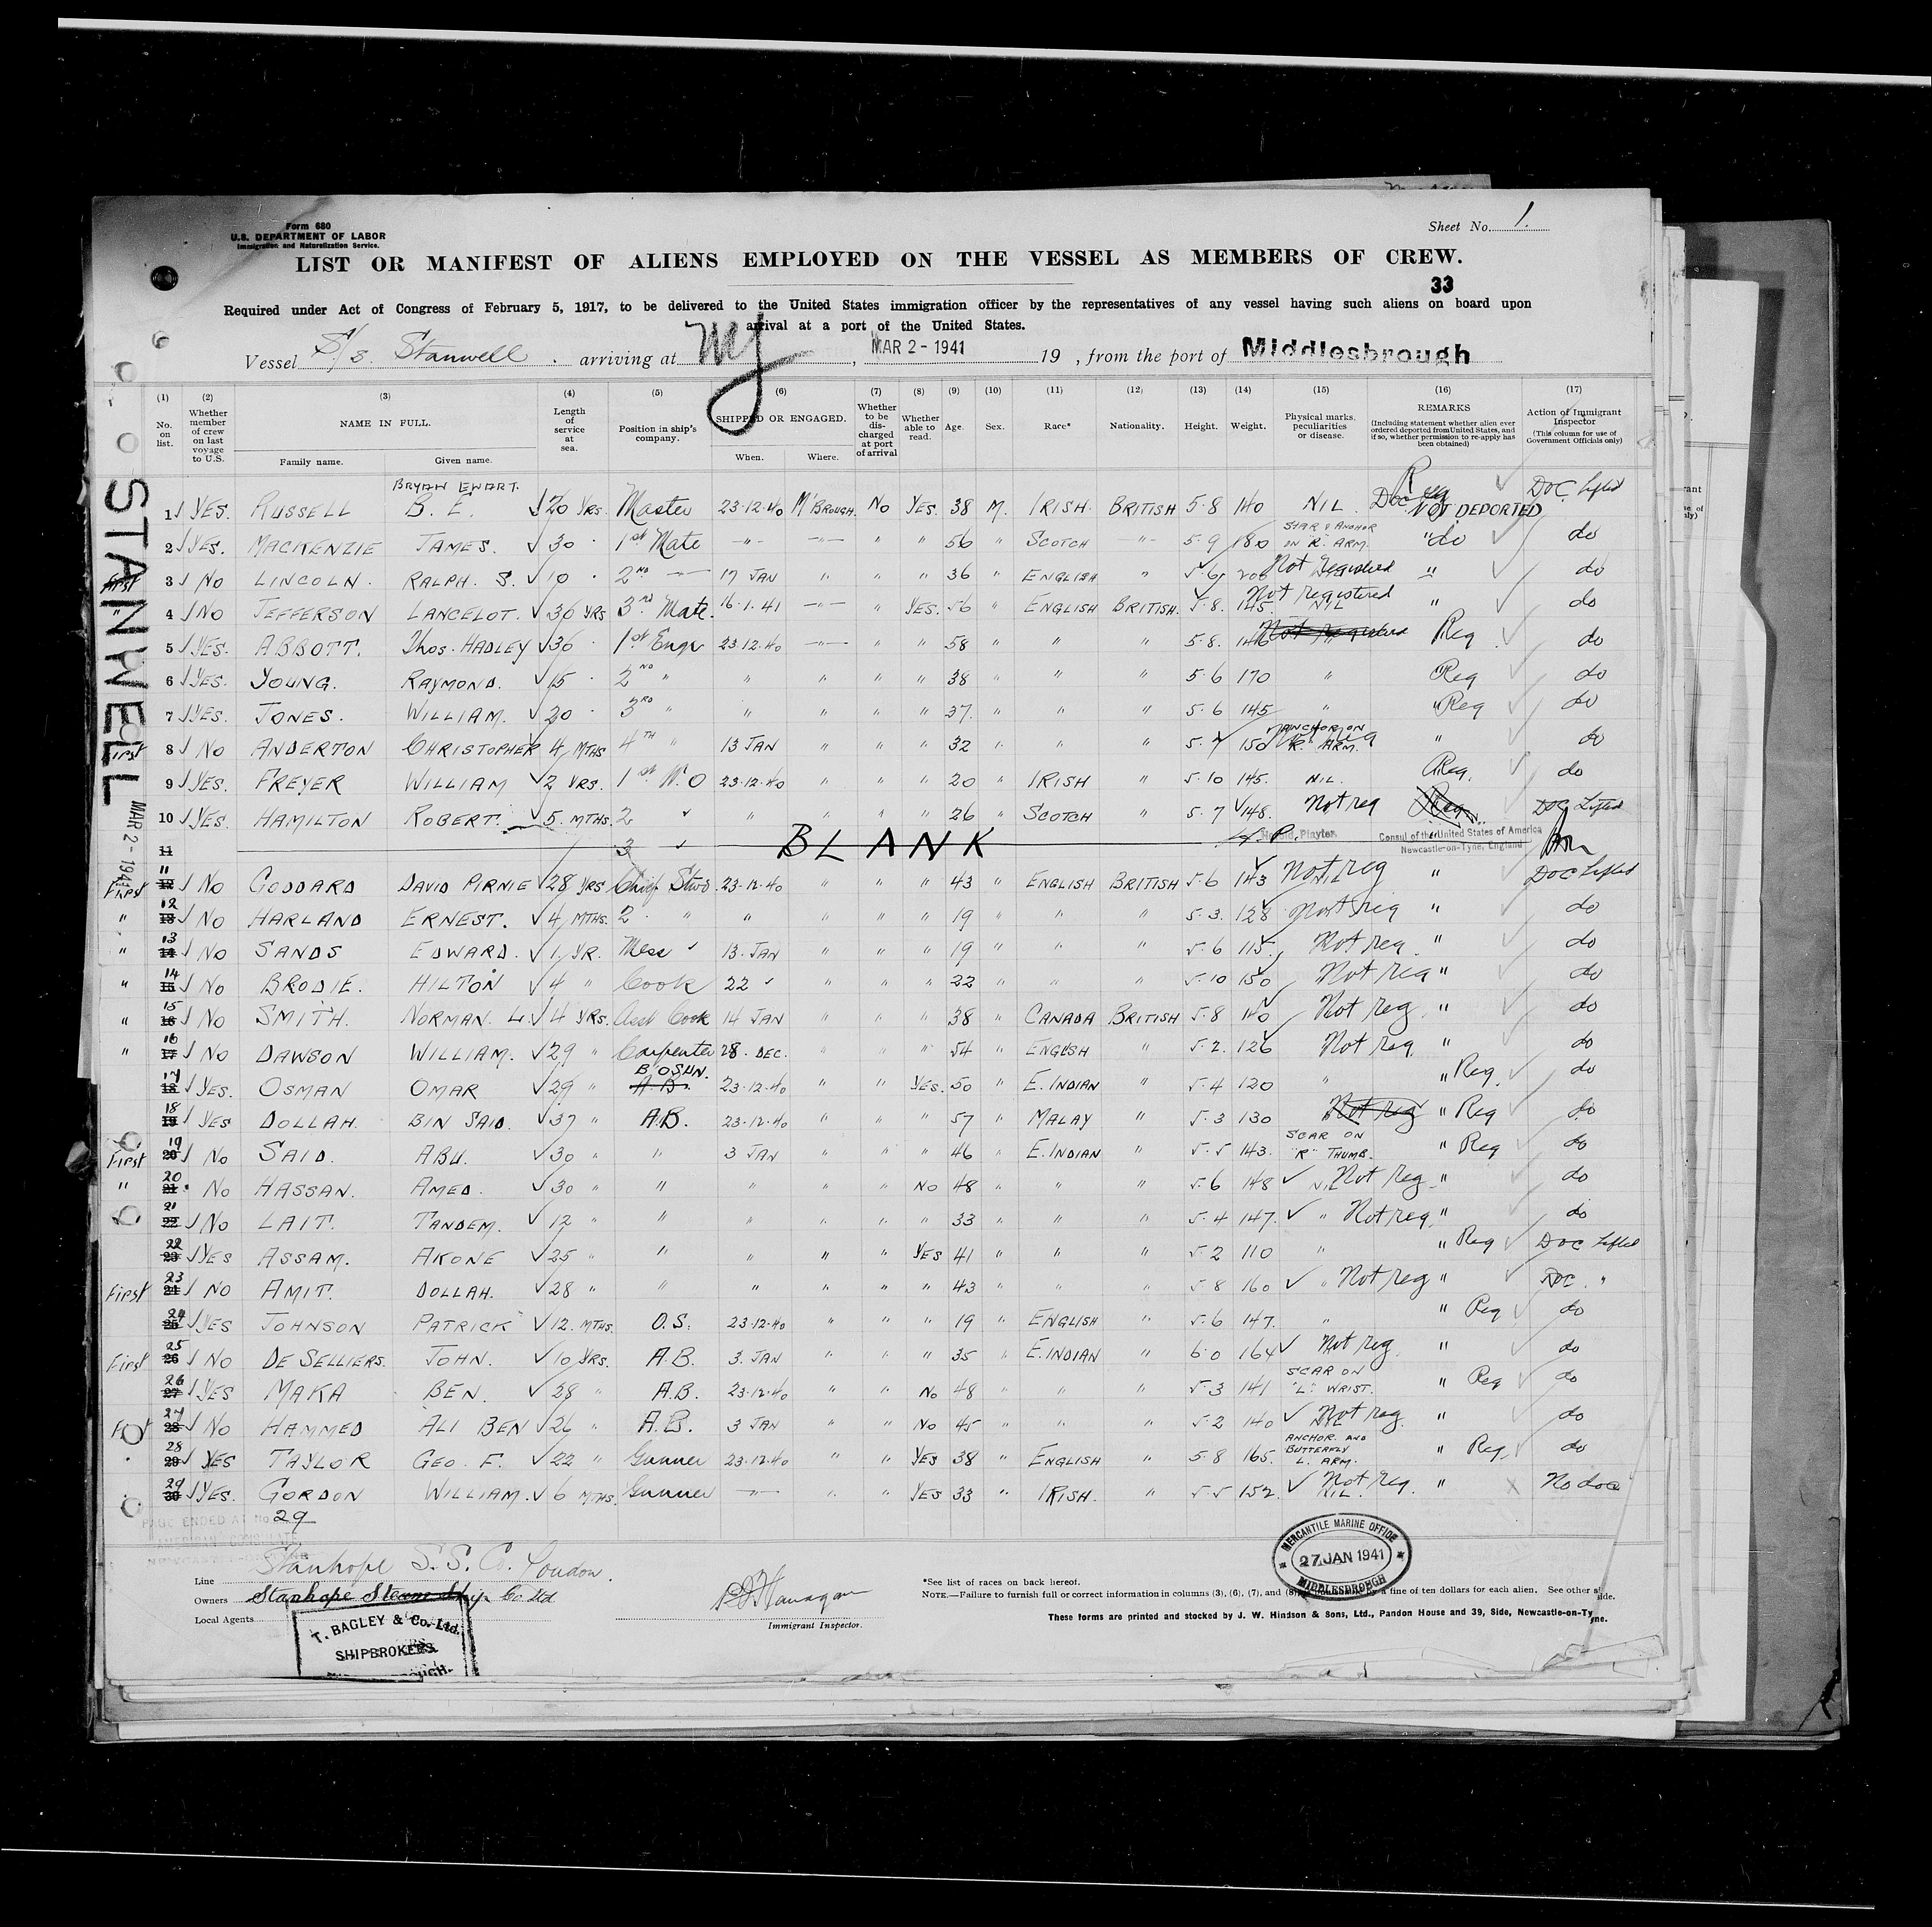 Form 680
U.S. DEPARTMENT OF LABOR
Immigration and Naturalization Service.
Sheet No. 1.
LIST OR MANIFEST OF ALIENS EMPLOYED ON THE VESSEL AS MEMBERS OF CREW.
33
Required under Act of Congress of February 5, 1917, to be delivered to the United States immigration officer by the representatives of any vessel having such aliens on board upon
arrival at a port of the United States.
Vessel S/s. Stanwell. arriving at NY, MAR 2 - 1941 19 , from the port of Middlesbrough
(1) No. on list.
(2) Whether member of crew on last voyage to U.S.
(3) NAME IN FULL. Family name. Given name.
(4) Length of service at sea.
(5) Position in ship's company.
(6) SHIPPED OR ENGAGED. When. Where.
(7) Whether to be discharged at port of arrival
(8) Whether able to read.
(9) Age.
(10) Sex.
(11) Race*
(12) Nationality.
(13) Height.
(14) Weight.
(15) Physical marks, peculiarities or disease.
(16) REMARKS (Including statement whether alien ever ordered deported from United States, and if so, whether permission to re-apply has been obtained)
(17) Action of Immigrant Inspector (This column for use of Government Officials only)
STANWELL
MAR 2 - 1941
BRYAN EWART.
1 YES. RUSSELL B. E. 20 YRS. Master 23.12.40 M'BROUGH. NO YES. 38 M. IRISH. BRITISH 5.8 140 NIL. Reg NOT DEPORTED DOC. Lifted
2 YES. MACKENZIE JAMES. 30 1st Mate -"- -"- " " 56 " SCOTCH -"- 5.9 180 STAR & ANCHOR ON "R" ARM. "do do
First 3 NO LINCOLN. RALPH. S. 10 2ND -"- 17 JAN " " " 36 " ENGLISH " 5.6 200 Not Registered " do
" 4 NO JEFFERSON LANCELOT. 30 YRS 3rd Mate. 16.1.41 -"- " YES. 56 " ENGLISH BRITISH. 5.8. 145. Not registered NIL " do
5 YES. ABBOTT. Thos. HADLEY 36 1st Engr 23.12.40 -"- " " 58 " " " 5.8. 146 Not registered Reg do
6 YES. YOUNG. RAYMOND. 15 2ND " " " " " 38 " " " 5.6 170 " Reg do
7 YES. JONES. WILLIAM. 20 3RD " " " " " 37. " " " 5.6 145 " "Reg do
First 8 NO ANDERTON CHRISTOPHER 4 MTHS 4TH " 13 JAN " " " 32 " " " 5.7 150 ANCHOR ON "R" ARM. " do
9 YES. FREYER WILLIAM 2 YRS. 1st W.O 23.12.40 " " " 20 " IRISH " 5.10 145. NIL. Reg. do
10 YES. HAMILTON ROBERT. 5. MTHS. 2 " " " " " 26 " SCOTCH " 5.7 148. Not reg DOC Lifted
11 3 " BLANK
Playter
Consul of the United States of America
Newcastle-on-Tyne, England
First 11 12 NO GODDARD DAVID PIRNIE 28 YRS Chief Stwd. 23.12.40 " " " 43 " ENGLISH BRITISH 5.6 143 Not reg NIL " DOC Lifted
" 12 13 NO HARLAND ERNEST. 4 MTHS. 2 " " " " " 19 " " " 5.3. 128 Not reg " do
" 13 14 NO SANDS EDWARD. 1 YR. Mess " 13. JAN " " " 19 " " " 5.6 115. Not reg. " do
" 14 15 NO BRODIE. HILTON 4 " Cook 22 " " " " 22 " " " 5.10 150 Not reg " do
" 15 16 NO SMITH. NORMAN. L. 4 YRS. Asst Cook 14 JAN " " " 38 " CANADA BRITISH 5.8 140 Not reg " do
" 16 17 NO DAWSON WILLIAM. 29 " Carpenter 28. DEC. " " " 54 " ENGLISH " 5.2. 126 Not reg " do
17 18 YES. OSMAN OMAR 29 " B'OSUN. A.B. 23.12.40 " " YES. 50 " E. INDIAN " 5.4 120 " " Reg. do
18 19 YES DOLLAH. BIN SAID. 37 " A.B. 23.12.40 " " " 57 " MALAY " 5.3 130 Not reg " Reg do
First 19 20 NO SAID. ABU. 30 " " 3 JAN " " " 46 " E. INDIAN " 5.5 143. SCAR ON "R" THUMB. " Reg do
" 20 21 NO HASSAN. AMED. 30 " " " " " NO 48 " " " 5.6 148 NIL Not reg. " do
21 22 NO LAIT. TANDEM. 12 " " " " " " 33 " " " 5.4 147. " Not reg. " do
22 23 YES ASSAM. AKONE 25 " " " " " YES 41 " " " 5.2 110 " " Reg DOC Lifted
First 23 24 NO AMIT. DOLLAH. 28 " " " " " " 43 " " " 5.8 160 " Not reg " DOC. "
24 25 YES JOHNSON PATRICK 12. MTHS. O.S. 23.12.40 " " " 19 " ENGLISH " 5.6 147. " " Reg do
First 25 26 NO DE SELLIERS. JOHN. 10 YRS. A.B. 3. JAN " " " 35 " E. INDIAN " 6.0 164 Not reg. " do
26 27 YES MAKA BEN. 28 " A.B. 23.12.40 " " NO 48 " " " 5.3 141 SCAR ON "L" WRIST. " Reg do
First 27 28 NO HAMMED ALI BEN 26 " A.B. 3 JAN " " NO 45 " " " 5.2 140 Not reg. NIL " do
28 29 YES TAYLOR GEO. F. 22 " Gunner 23.12.40 " " YES 38 " ENGLISH " 5.8 165. ANCHOR. AND BUTTERFLY L. ARM. " Reg. do
29 30 YES. GORDON WILLIAM. 6 MTHS. Gunner -"- " " YES 33 " IRISH. " 5.5 152. Not reg. NIL. " X No doc
PAGE ENDED AT No. 29
AMERICAN CONSULATE
Line Stanhope S.S. Co. London.
Owners Stanhope Steamship Co Ltd
Local Agents
T. BAGLEY & Co. Ltd.
SHIPBROKERS
Immigrant Inspector.
MERCANTILE MARINE OFFICE
27 JAN 1941
MIDDLESBROUGH
*See list of races on back hereof.
NOTE.—Failure to furnish full or correct information in columns (3), (6), (7), and (8) by a fine of ten dollars for each alien. See other side.
These forms are printed and stocked by J. W. Hindson & Sons, Ltd., Pandon House and 39, Side, Newcastle-on-Tyne.